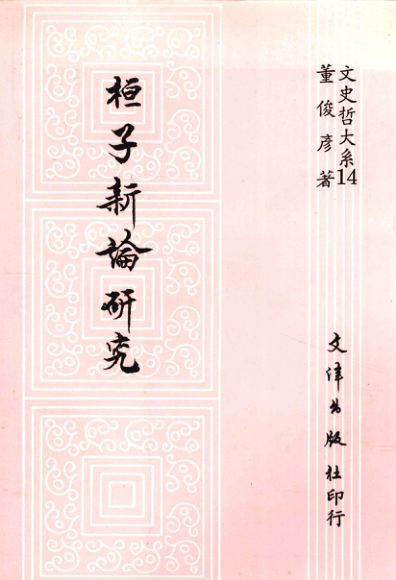 文史哲大系14
董俊彥 著
桓子新論研究
文津出版社印行